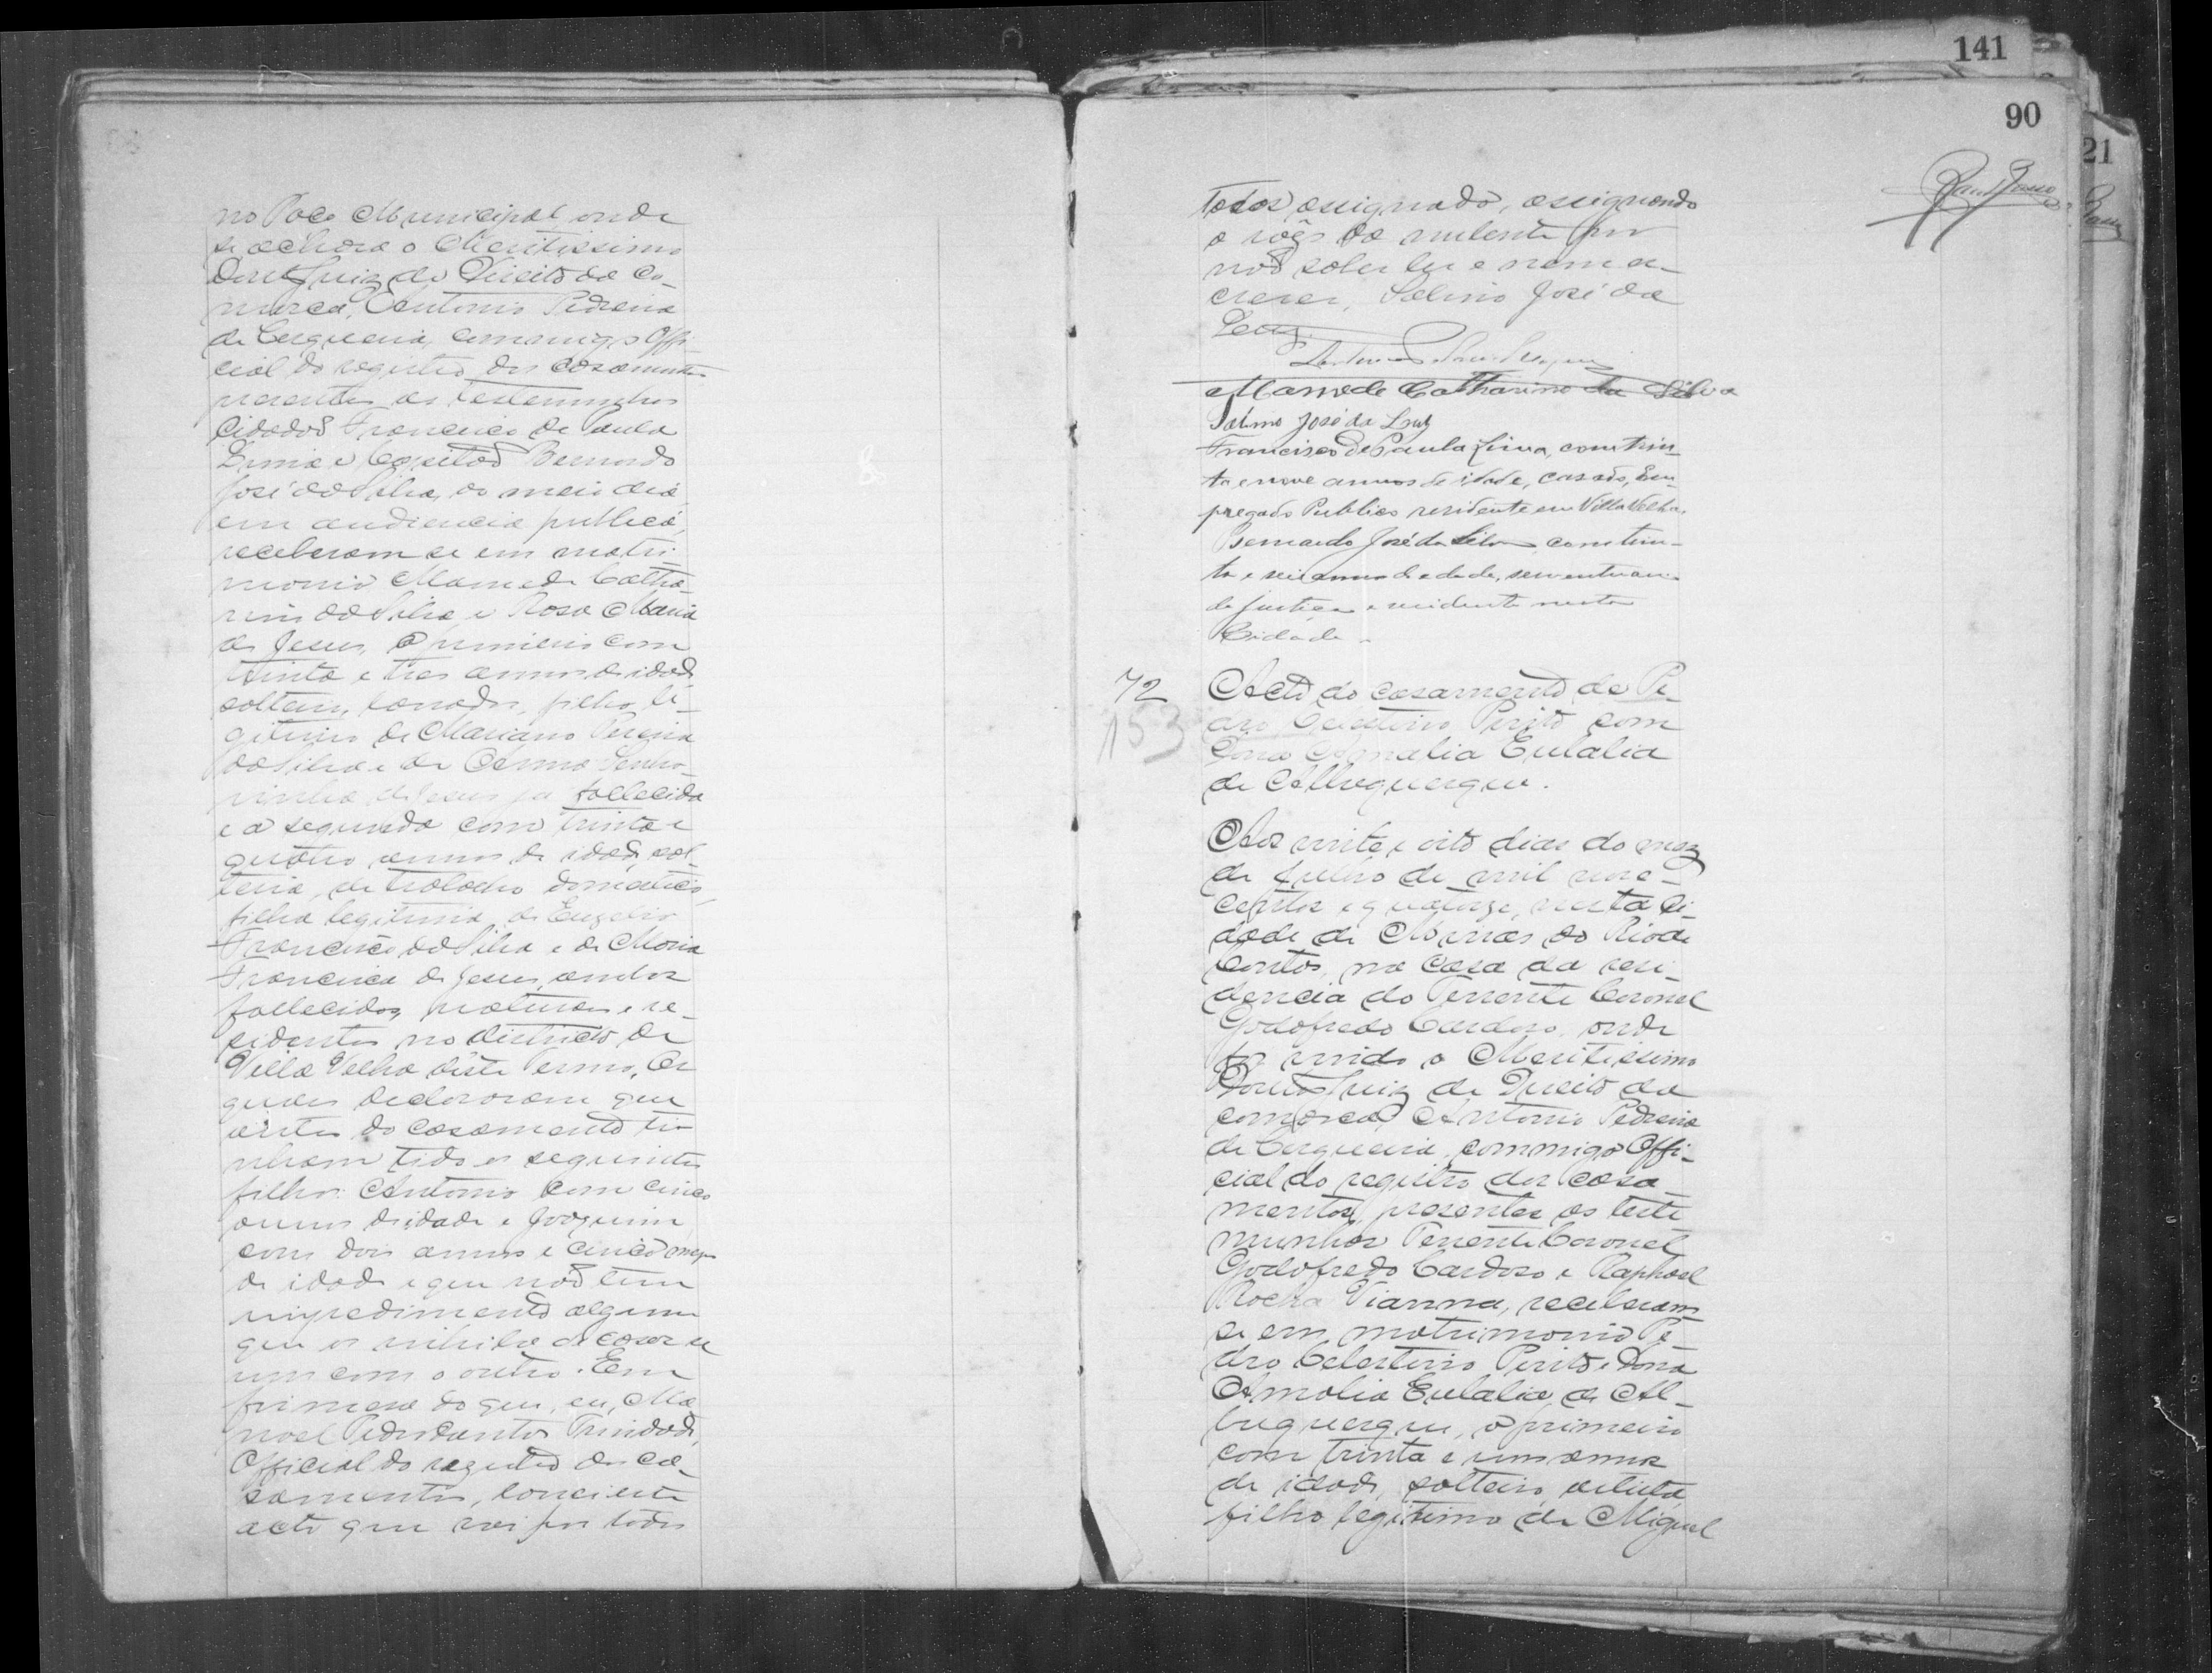 no Paço Municipal onde
se achava o Meritissimo
Doutor Juiz de Direito da Co-
marca, Antonio Pedreira
de Cerqueira, commigo Offi-
cial do registro dos casamentos
presentes as testemunhas
Cidadãos Francisco de Paula
Lima e Capitão Bernardo
José da Silva, ao meio dia
em audiencia publica,
receberam se em matri-
monio Mamede Catha-
rino da Silva e Rosa Maria
de Jesus, o primeiro com
trinta e tres annos de idade
solteiro, lavrador, filho le-
gitimo de Mariano Pereira
da Silva e de Carma Senho-
rinha de Jesus já fallecida
e a segunda com trinta e
quatro annos de idade, sol-
teira, de trabalho domestico,
filha legitima de Euzebio
Francisco da Silva e de Maria
Francisca de Jesus, ambos
fallecidos, naturaes e re-
sidentes no districto de
Villa Velha dêste Termo, Os
quaes declararam que
antes do casamento ti-
nham tido os seguintes
filhos: Antonio com cinco
annos de idade e Joaquim
com dois annos e cinco mezes
de idade e que não tem
impedimento algum
que os inhiba de casar se
um com o outro. Em
firmesa do que, eu, Ma-
noel Pedro dantos Trindade,
Official do registro dos ca-
samentos, lavrei este
acto que vai por todos
141
90
21
todos assignado, assignando
a rôgo da nubente por
não saber ler e nem es-
crever, Salino José da
Luz.
Mamede Catharino da Silva
Salino José da Luz
Francisco de Paula Lima, com trin-
ta e nove annos de idade, casado, Em-
pregado Publico residente em Villa Velha.
Bernardo José da Silva com trin-
ta e seis annos de edade, serventuario
de justiça e residente nesta
Cidade.
72
153
Acto do casamento de Pe-
dro Celestino Pinto com
Dona Amalia Eulalia
de Albuquerque.
Aos vinte e oito dias do mez
de Julho de mil nove-
centos e quatorze, nesta Ci-
dade de Minas do Rio de
Contas, na casa da resi-
dencia do Tenente Coronel
Godofredo Cardoso, onde
foi vindo o Meritissimo
Doutor Juiz de Direito da
comarca, Antonio Pedreira
de Cerqueira, commigo Offi-
cial do registro dos casa-
mentos, presentes as teste
munhas Tenente Coronel
Godofredo Cardoso e Raphael
Rocha Vianna, receberam
se em matrimonio Pe
dro Celestino Pinto e Dona
Amalia Eulalia de Al-
buquerque, o primeiro
com trinta e um annos
de idade, solteiro, artista,
filho legitimo de Miguel